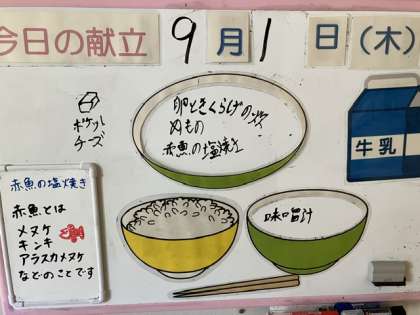 今日の献立 9月1日(木)
ポケット
チーズ
卵ときくらげの炒
めもの
赤魚の塩焼き
牛乳
赤魚の塩焼き
赤魚とは
メヌケ
キンキ
アラスカメヌケ
などのことです
味噌汁